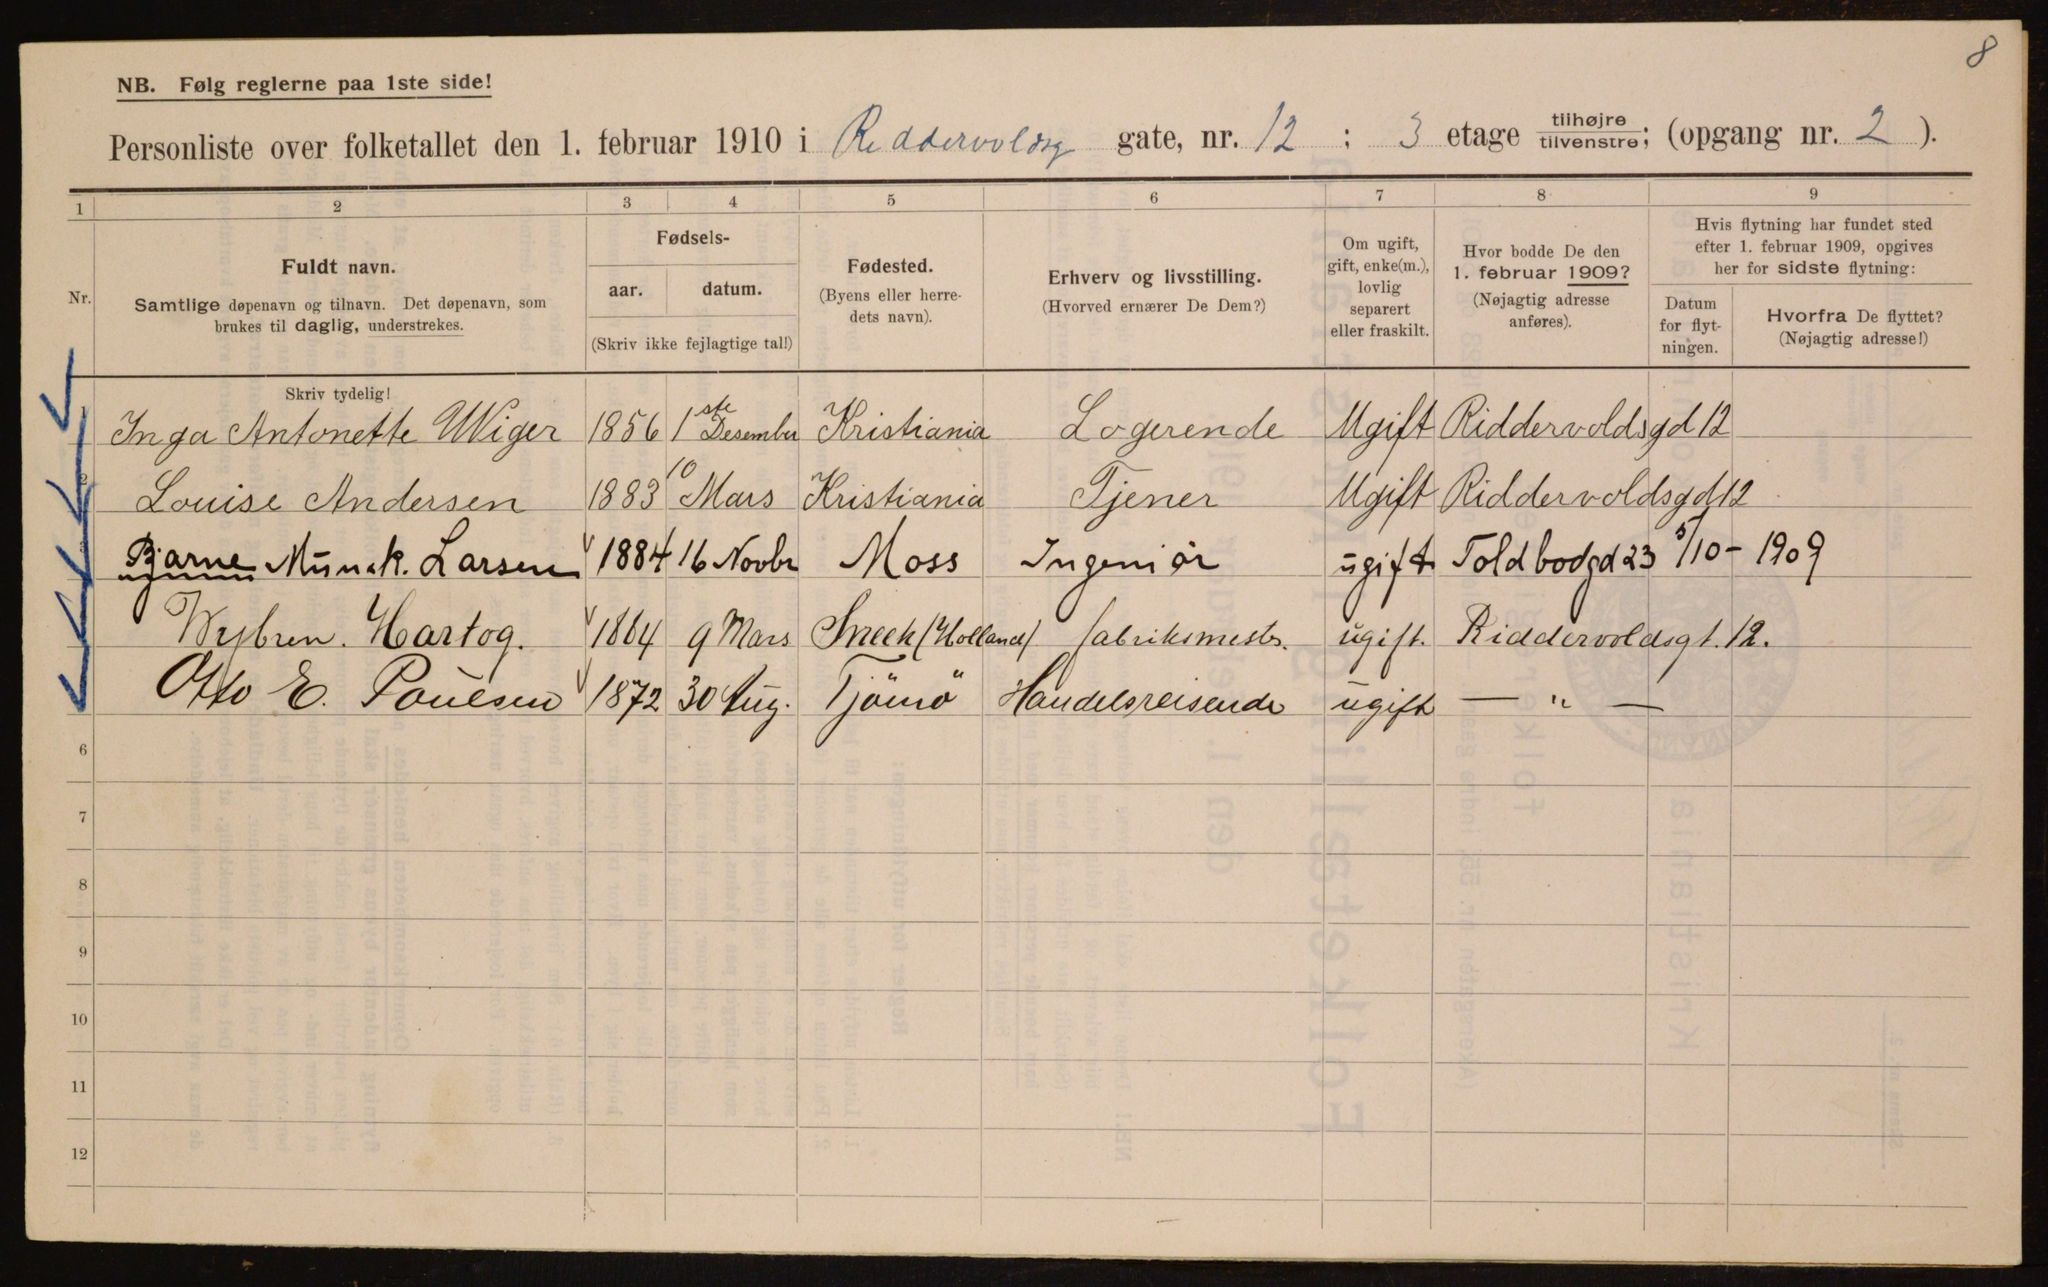 8
NB. Følg reglerne paa 1ste side!
Personliste over folketallet den 1. februar 1910 i Riddervoldsg gate, nr. 12 ; 3 etage tilhøjre/tilvenstre; (opgang nr. 2 ).
1 2 3 4 5 6 7 8 9
Nr.
Fuldt navn.
Samtlige døpenavn og tilnavn. Det døpenavn, som
brukes til daglig, understrekes.
Fødsels-
aar. datum.
(Skriv ikke fejlagtige tal!)
Fødested.
(Byens eller herre-
dets navn).
Erhverv og livsstilling.
(Hvorved ernærer De Dem?)
Om ugift,
gift, enke(m.),
lovlig
separert
eller fraskilt.
Hvor bodde De den
1. februar 1909?
(Nøjagtig adresse
anføres).
Hvis flytning har fundet sted
efter 1. februar 1909, opgives
her for sidste flytning:
Datum
for flyt-
ningen.
Hvorfra De flyttet?
(Nøjagtig adresse!)
Skriv tydelig!
1 Inga Antonette Wiger 1856 1ste Desember Kristiania Logerende Ugift Riddervoldsgd 12
2 Louise Andersen 1883 10 Mars Kristiania Tjener Ugift Riddervoldsgd 12
Bjarne Munck. Larsen 1884 16 Novbr Moss Ingeniør ugift Toldbodgd 23 5/10 - 1909
Wybren. Hartog. 1864 9 Mars Sneek (Holland) fabriksmestr. ugift. Riddervoldsgt. 12.
Otto E. Poulsen 1872 30 Aug. Tjömö Handelsreisende ugift — " —
6
7
8
9
10
11
12